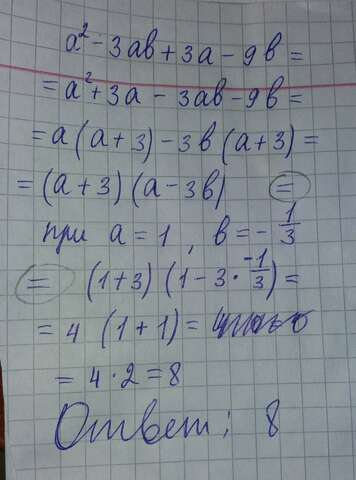 a² - 3ab + 3a - 9b =
= a² + 3a - 3ab - 9b =
= a (a + 3) - 3b (a + 3) =
= (a + 3) (a - 3b) =
при a = 1, b = - 1/3
= (1 + 3) (1 - 3 · -1/3) =
= 4 (1 + 1) =
= 4 · 2 = 8
Ответ: 8